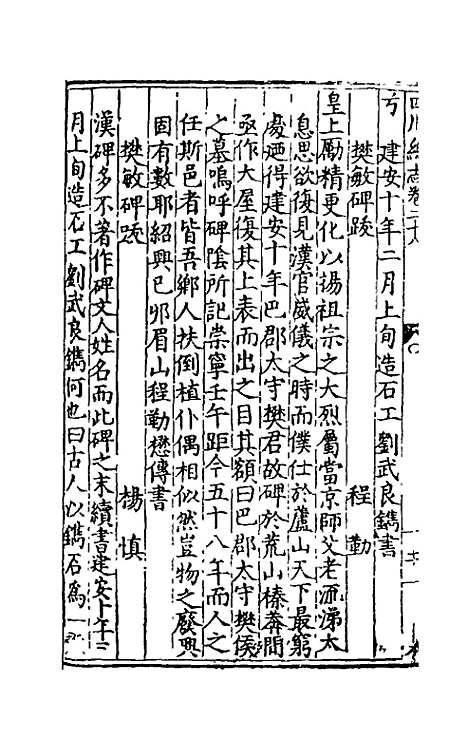 四川總志卷二十八
亏　建安十年二月上旬造石工劉武良鐫書
樊敏碑跋　程勤
皇上勵精更化以揚祖宗之大烈屬當京師父老流涕太
息思欲復見漢官威儀之時而僕仕於蘆山天下最窮
處廼得建安十年巴郡太守樊君故碑於荒山榛莽間
亟作大屋復其上表而出之目其額曰巴郡太守樊侯
之墓嗚呼碑陰所記崇寧壬午距今五十八年而人之
任斯邑者皆吾鄉人扶倒植仆偶相似然豈物之廢興
固有數耶紹興己卯眉山程勤懋傳書
樊敏碑跋　楊慎
漢碑多不著作碑文人姓名而此碑之末續書建安十年二
月上旬造石工劉武良鐫何也曰古人以鐫石爲一